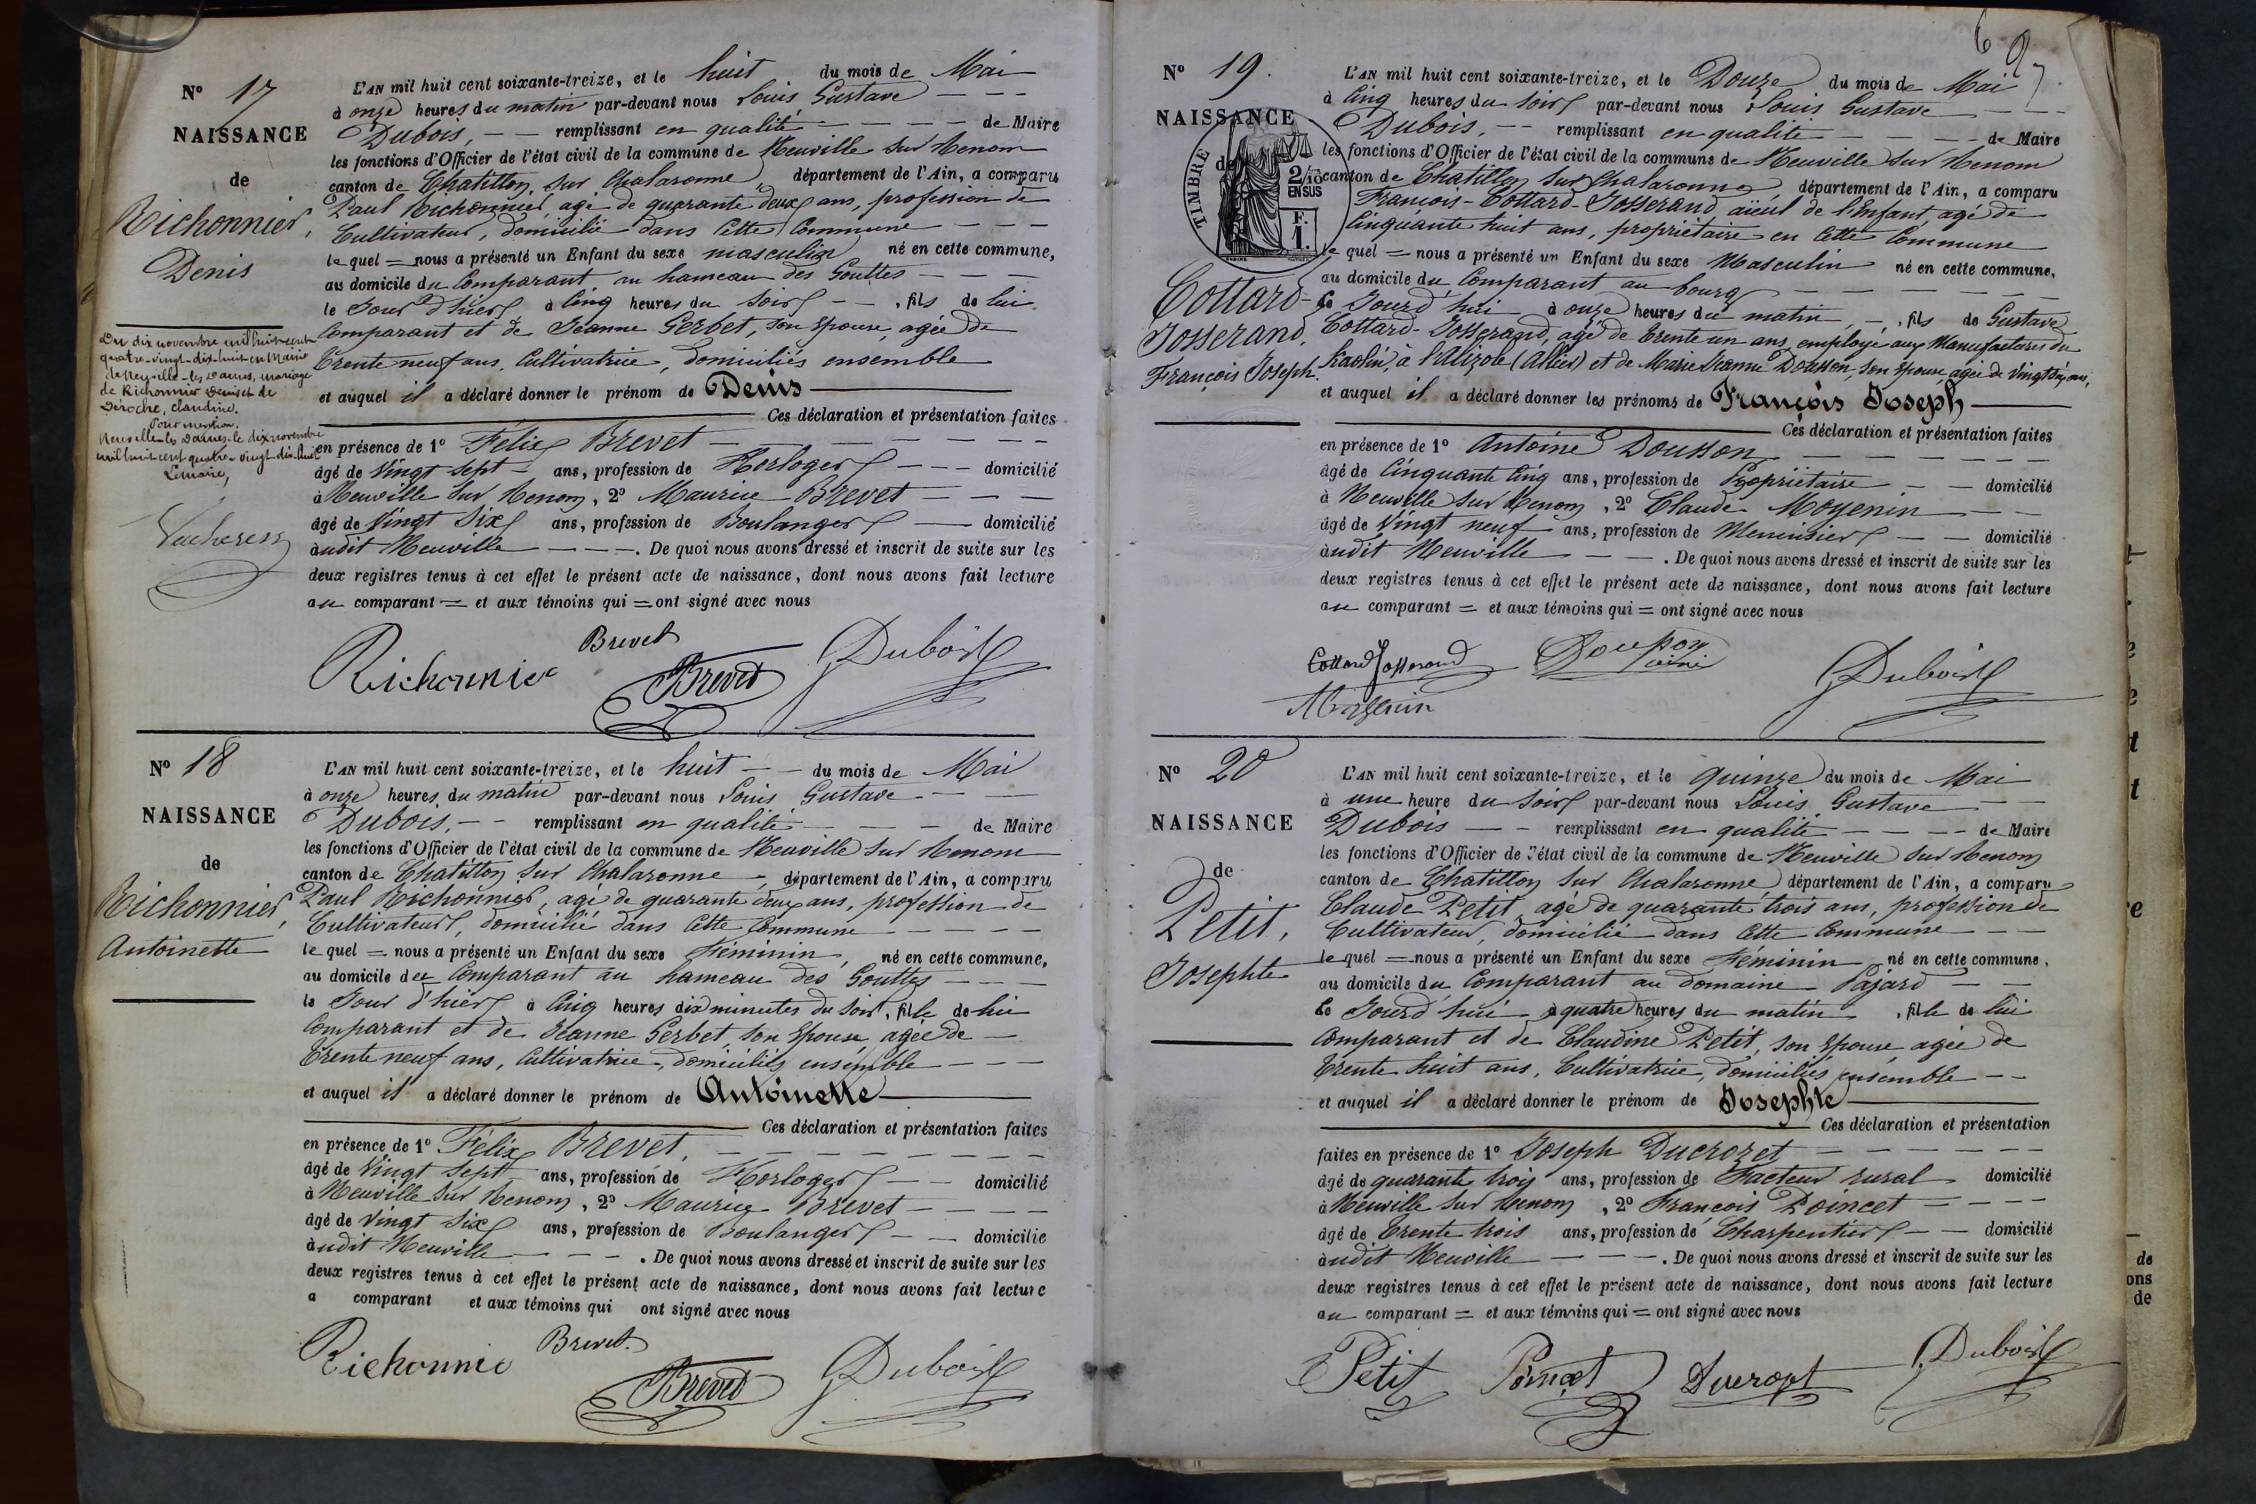 Nº 17
NAISSANCE
de
Richonnier,
Denis
Du dix novembre mil huit cent
quatre-vingt-dix-huit en Mairie
de Neuville-les-Dames, mariage
de Richonnier Denis et de
Deroche, Claudine.
Pour mention.
Neuville-les-Dames le dix novembre
mil huit cent quatre-vingt-dix-huit
Le maire,
L'AN mil huit cent soixante-treize, et le huit du mois de Mai
à onze heures du matin par-devant nous Louis Gustave
Dubois, remplissant en qualité de Maire
les fonctions d'Officier de l'état civil de la commune de Neuville sur Renom
canton de Chatillon sur Chalaronne, département de l'Ain, a comparu
Paul Richonnier, agé de quarante deux ans, profession de
Cultivateur, domicilié dans cette Commune
lequel = nous a présenté un Enfant du sexe masculin né en cette commune,
au domicile du Comparant au hameau des Gouttes
le Jour d'hier à cinq heures du soir, fils de lui
Comparant et de Jeanne Gerbet, son Epouse, agée de
Trente neuf ans, Cultivatrice, domiciliés ensemble
et auquel il a déclaré donner le prénom de Denis
Ces déclaration et présentation faites
en présence de 1º Félix Brevet
âgé de Vingt sept ans, profession de Horloger domicilié
à Neuville sur Renom, 2º Maurice Brevet
âgé de Vingt Six ans, profession de Boulanger domicilié
audit Neuville. De quoi nous avons dressé et inscrit de suite sur les
deux registres tenus à cet effet le présent acte de naissance, dont nous avons fait lecture
au comparant = et aux témoins qui = ont signé avec nous
Richonnier Brevet Brevet Dubois
Nº 18
NAISSANCE
de
Richonnier,
Antoinette
L'AN mil huit cent soixante-treize, et le huit du mois de Mai
à onze heures du matin par-devant nous Louis Gustave
Dubois, remplissant en qualité de Maire
les fonctions d'Officier de l'état civil de la commune de Neuville sur Renom
canton de Chatillon sur Chalaronne, département de l'Ain, a comparu
Paul Richonnier, agé de quarante deux ans, profession de
Cultivateur, domicilié dans cette Commune
lequel = nous a présenté un Enfant du sexe Féminin, né en cette commune,
au domicile du Comparant au hameau des Gouttes
le Jour d'hier à cinq heures dix minutes du soir, fille de lui
Comparant et de Jeanne Gerbet, son Epouse, agée de
Trente neuf ans, Cultivatrice, domiciliés ensemble
et auquel il a déclaré donner le prénom de Antoinette
Ces déclaration et présentation faites
en présence de 1º Félix Brevet,
âgé de Vingt Sept ans, profession de Horloger domicilié
à Neuville sur Renom, 2º Maurice Brevet
âgé de Vingt Six ans, profession de Boulanger domicilié
audit Neuville. De quoi nous avons dressé et inscrit de suite sur les
deux registres tenus à cet effet le présent acte de naissance, dont nous avons fait lecture
a comparant et aux témoins qui ont signé avec nous
Richonnier Brevet. Brevet Dubois
6
Nº 19.
NAISSANCE
de
TIMBRE
2/10
EN SUS
F.
1.
Cottard-
Josserand,
François Joseph.
L'AN mil huit cent soixante-treize, et le Douze du mois de Mai
à Cinq heures du soir par-devant nous Louis Gustave
Dubois, remplissant en qualité de Maire
les fonctions d'Officier de l'état civil de la commune de Neuville sur Renom
canton de Chatillon sur Chalaronne, département de l'Ain, a comparu
François-Cottard-Josserand aïeul de l'Enfant, agé de
Cinquante huit ans, propriétaire en cette Commune
lequel = nous a présenté un Enfant du sexe Masculin né en cette commune,
au domicile du Comparant au bourg
Ce Jourd'hui à onze heures du matin, fils de Gustave
Cottard-Josserand, agé de trente un ans, employé aux Manufactures du
Kaolin, à l'Alizole (Allier) et de Marie Jeanne Dousson, son Epouse, agée de Vingt six ans,
et auquel il a déclaré donner les prénoms de François Joseph
Ces déclaration et présentation faites
en présence de 1º Antoine Dousson
âgé de Cinquante Cinq ans, profession de Propriétaire domicilié
à Neuville sur Renom, 2º Claude Moyenin
âgé de Vingt neuf ans, profession de Menuisier domicilié
audit Neuville. De quoi nous avons dressé et inscrit de suite sur les
deux registres tenus à cet effet le présent acte de naissance, dont nous avons fait lecture
au comparant = et aux témoins qui = ont signé avec nous
Cottard Josserand Dousson ainé Dubois
Moyenin
Nº 20
NAISSANCE
de
Petit,
Josephte
L'AN mil huit cent soixante-treize, et le Quinze du mois de Mai
à une heure du Soir par-devant nous Louis Gustave
Dubois remplissant en qualité de Maire
les fonctions d'Officier de l'état civil de la commune de Neuville sur Renom
canton de Chatillon sur Chalaronne département de l'Ain, a comparu
Claude Petit, agé de quarante trois ans, profession de
Cultivateur, domicilié dans cette Commune
lequel = nous a présenté un Enfant du sexe Féminin né en cette commune,
au domicile du Comparant au domaine Pajard
Ce Jourd'hui à quatre heures du matin, fille de lui
Comparant et de Claudine Petit, son Epouse, agée de
Trente huit ans, Cultivatrice, domiciliés ensemble
et auquel il a déclaré donner le prénom de Josephte
Ces déclaration et présentation
faites en présence de 1º Joseph Ducrozet
âgé de quarante trois ans, profession de Facteur rural domicilié
à Neuville sur Renom, 2º François Poincet
âgé de Trente trois ans, profession de Charpentier domicilié
audit Neuville. De quoi nous avons dressé et inscrit de suite sur les
deux registres tenus à cet effet le présent acte de naissance, dont nous avons fait lecture
au comparant = et aux témoins qui = ont signé avec nous
Petit Poincet Ducrozet Dubois
de
ons
de